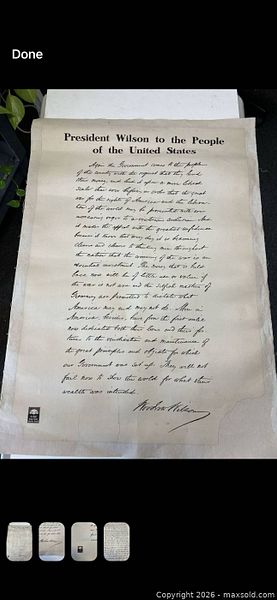 Done
President Wilson to the People
of the United States
Again the Government comes to the people
of the country with the request that they lend
their money, and lend it upon a more liberal
scale than ever before, in order that the great
war for the rights of America and the libera-
tion of the world may be prosecuted with ever
increasing vigor to a victorious conclusion. And
it makes the appeal with the greatest confidence
because it knows that every day it is becoming
clearer and clearer to thinking men throughout
the nation that the winning of the war is an
essential investment. The money that is held
back now will be of little use or value if
the war is not won and the selfish masters of
Germany are permitted to dictate what
America may and may not do. Men in
America, besides, have from the first until
now dedicated both their lives and their for-
tunes to the vindication and maintenance of
the great principles and objects for which
our Government was set up. They will not
fail now to show the world for what their
wealth was intended.
Woodrow Wilson
Copyright 2026 - maxsold.com